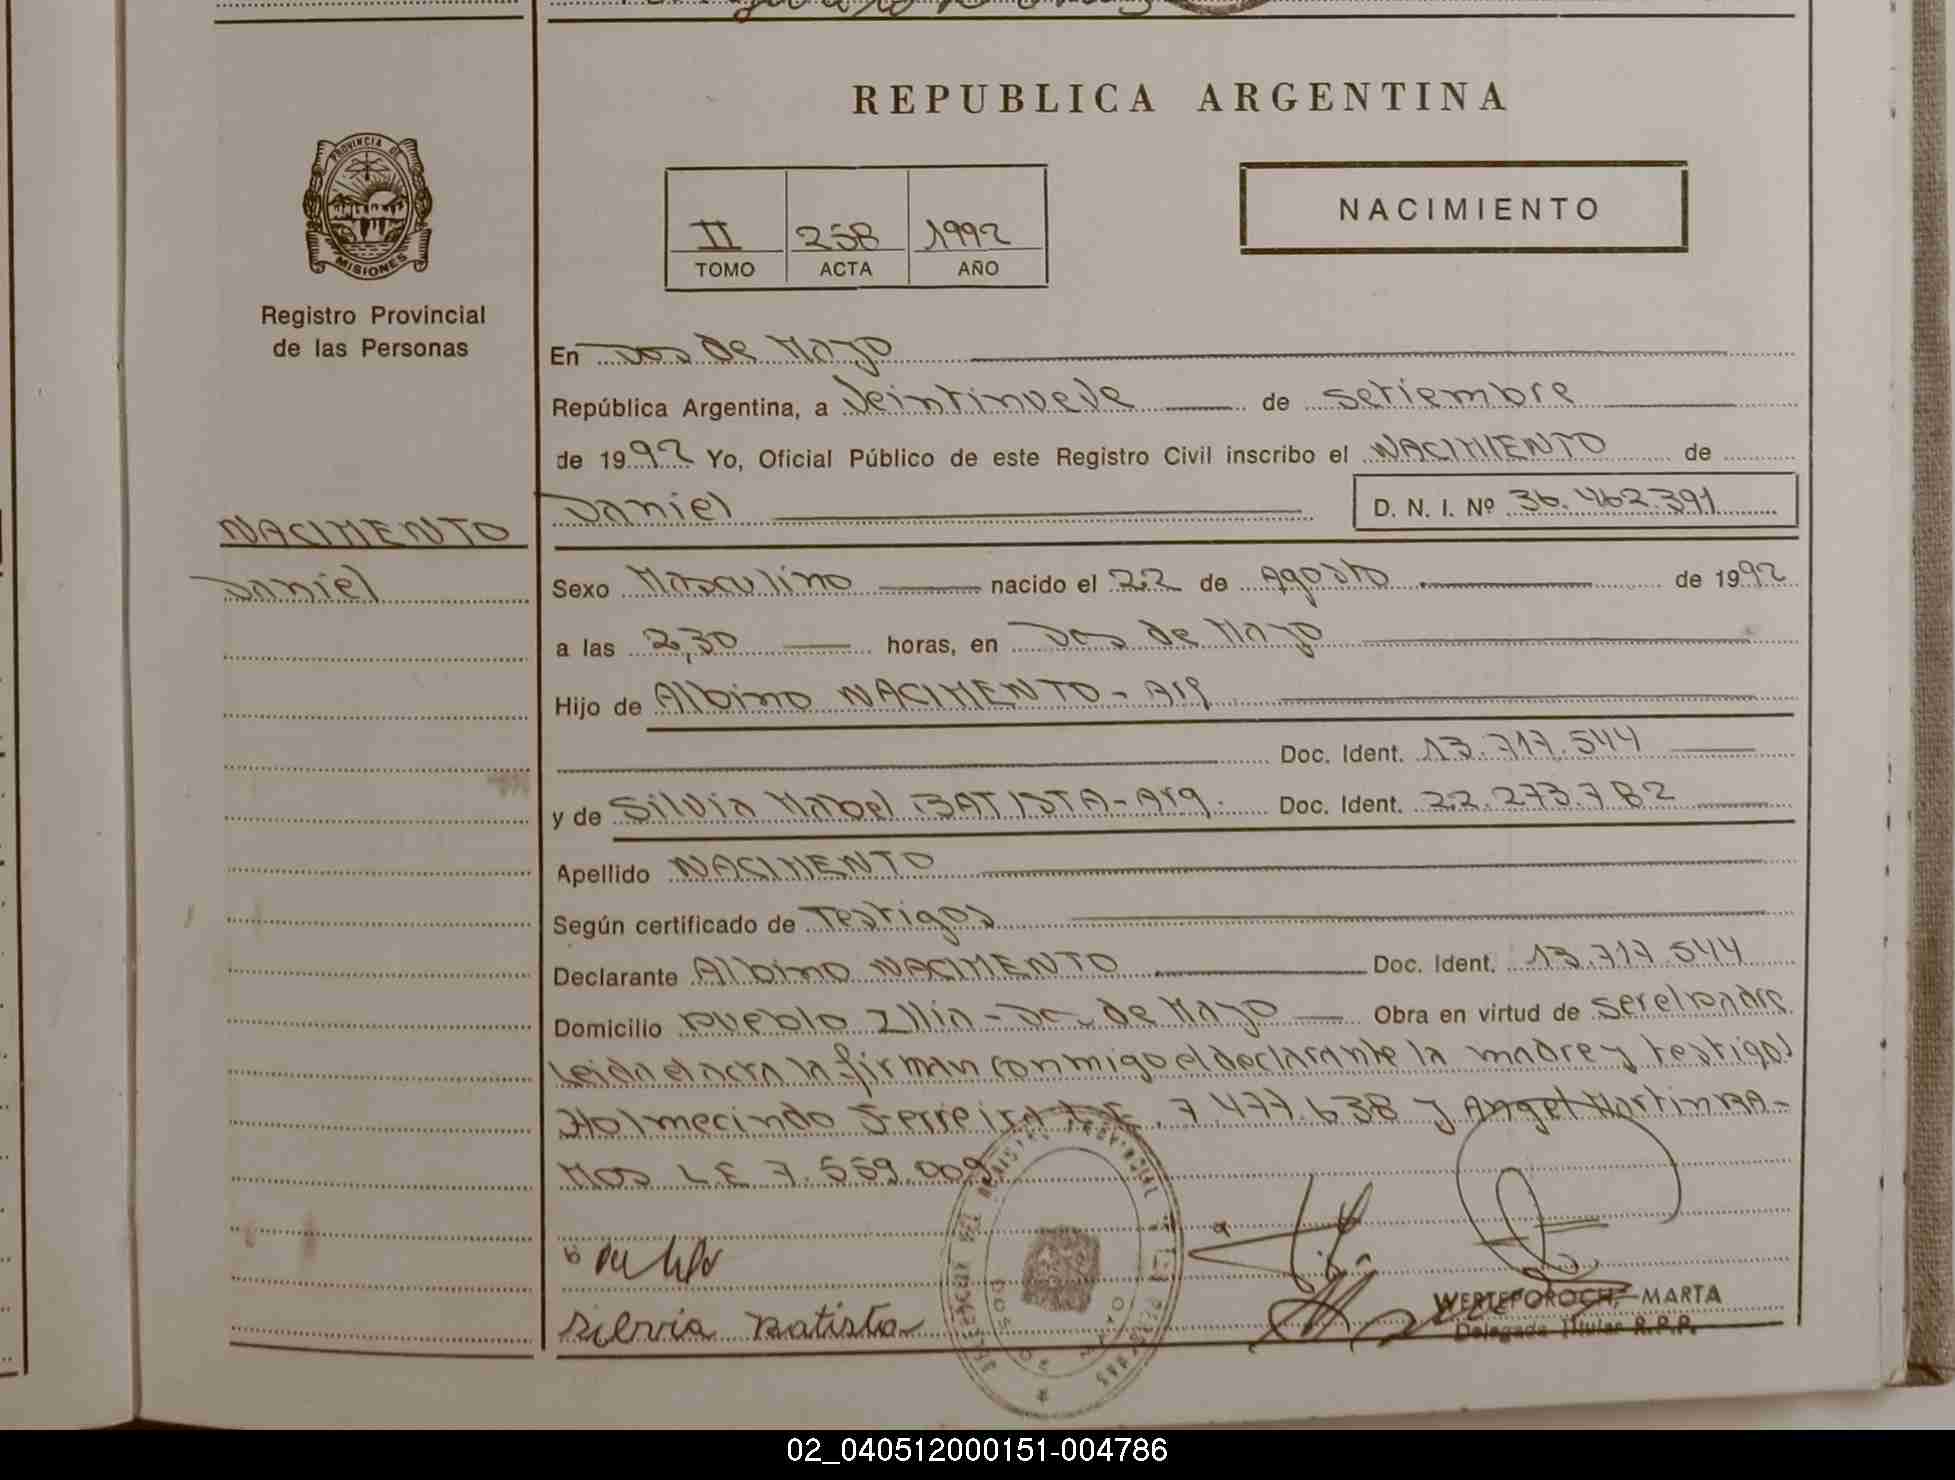 REPUBLICA ARGENTINA
PROVINCIA DE
MISIONES
Registro Provincial
de las Personas
II 258 1992
TOMO ACTA AÑO
NACIMIENTO
En Dos de Mayo
República Argentina, a Veintinueve de setiembre
de 1992 Yo, Oficial Público de este Registro Civil inscribo el NACIMIENTO de
Daniel D. N. I. Nº 36.462.391
NACIMENTO
Daniel
Sexo Masculino nacido el 22 de Agosto de 1992
a las 2,30 horas, en Dos de Mayo
Hijo de Albino NACIMENTO - Arg
Doc. Ident. 13.717.544
y de Silvia Mabel BATISTA - Arg. Doc. Ident. 22.273.782
Apellido NACIMENTO
Según certificado de Testigos
Declarante Albino NACIMENTO Doc. Ident. 13.717.544
Domicilio Pueblo Illia - Dos de Mayo Obra en virtud de ser el padre
Leida el acta la firman conmigo el declarante la madre y testigos
Holmecindo Ferreira L.E. 7.477.638 y Angel Martin RA-
MOS L.E 7.559.009
Silvia Batista
WERTEPOROCH, MARTA
Delegada Titular R.P.P.
02_040512000151-004786